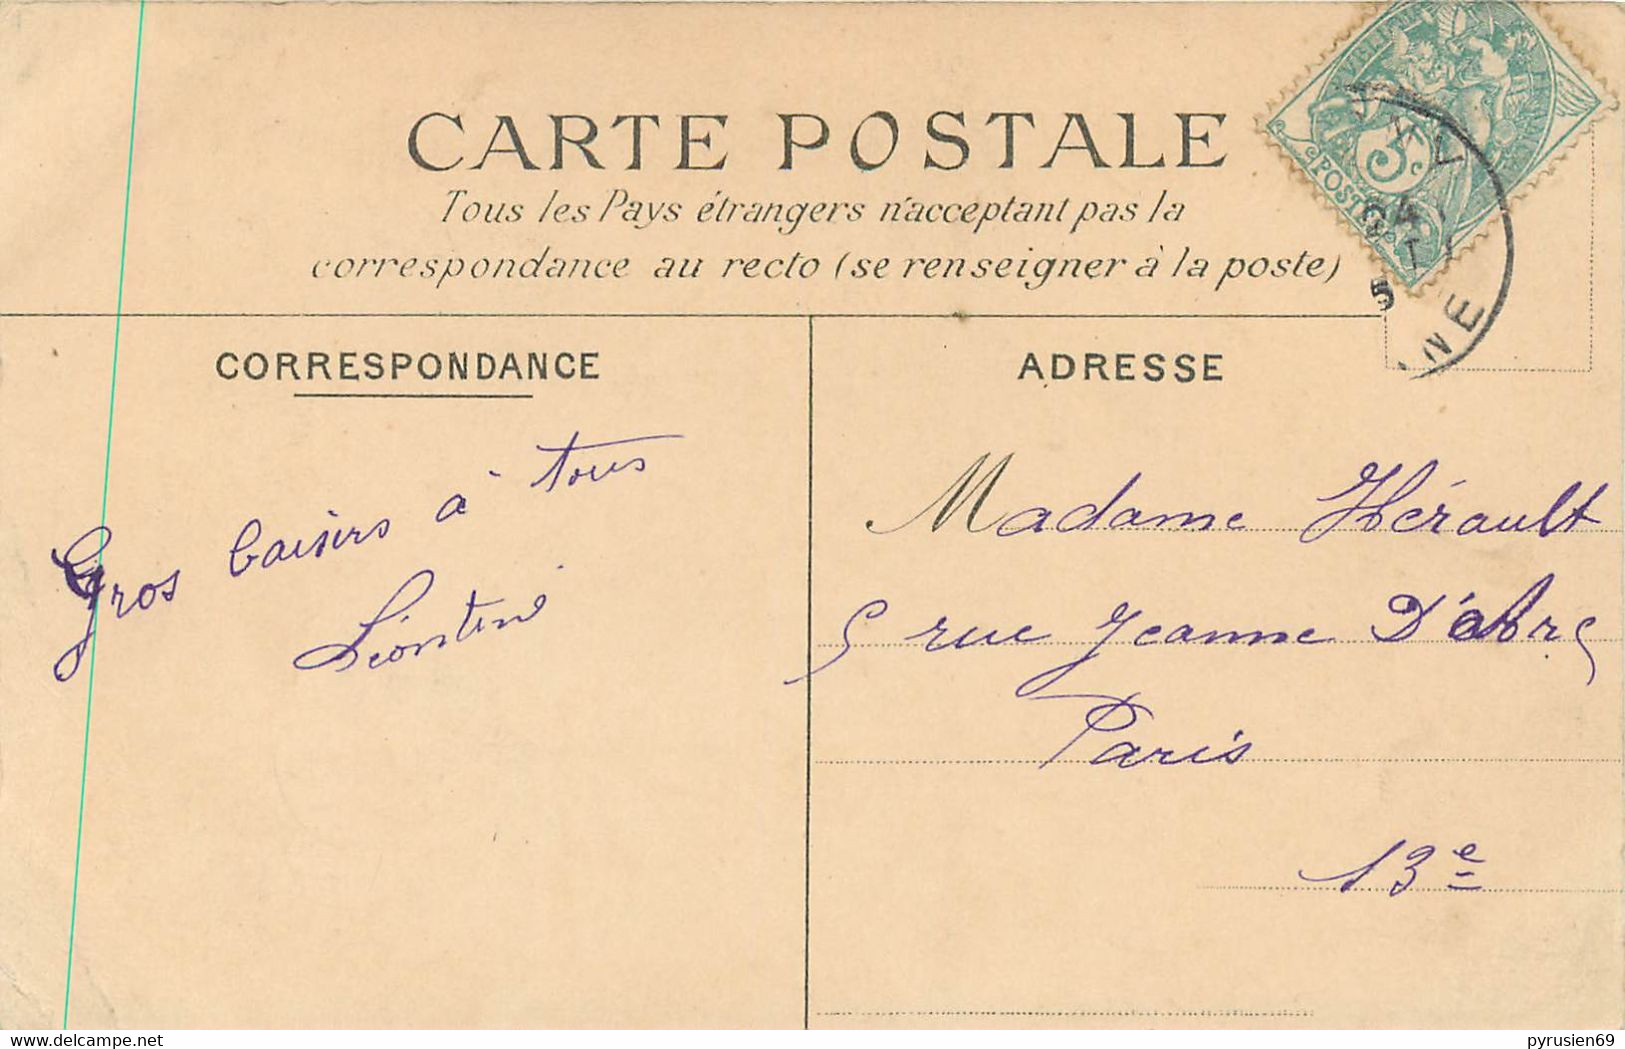 CARTE POSTALE
Tous les Pays étrangers n'acceptant pas la
correspondance au recto (se renseigner à la poste)
3c
POSTES
24
5
NE
CORRESPONDANCE
Gros baisers à tous
Léontine
ADRESSE
Madame Hérault
5 rue Jeanne D'Arc
Paris
13e
delcampe.net
pyrusien69